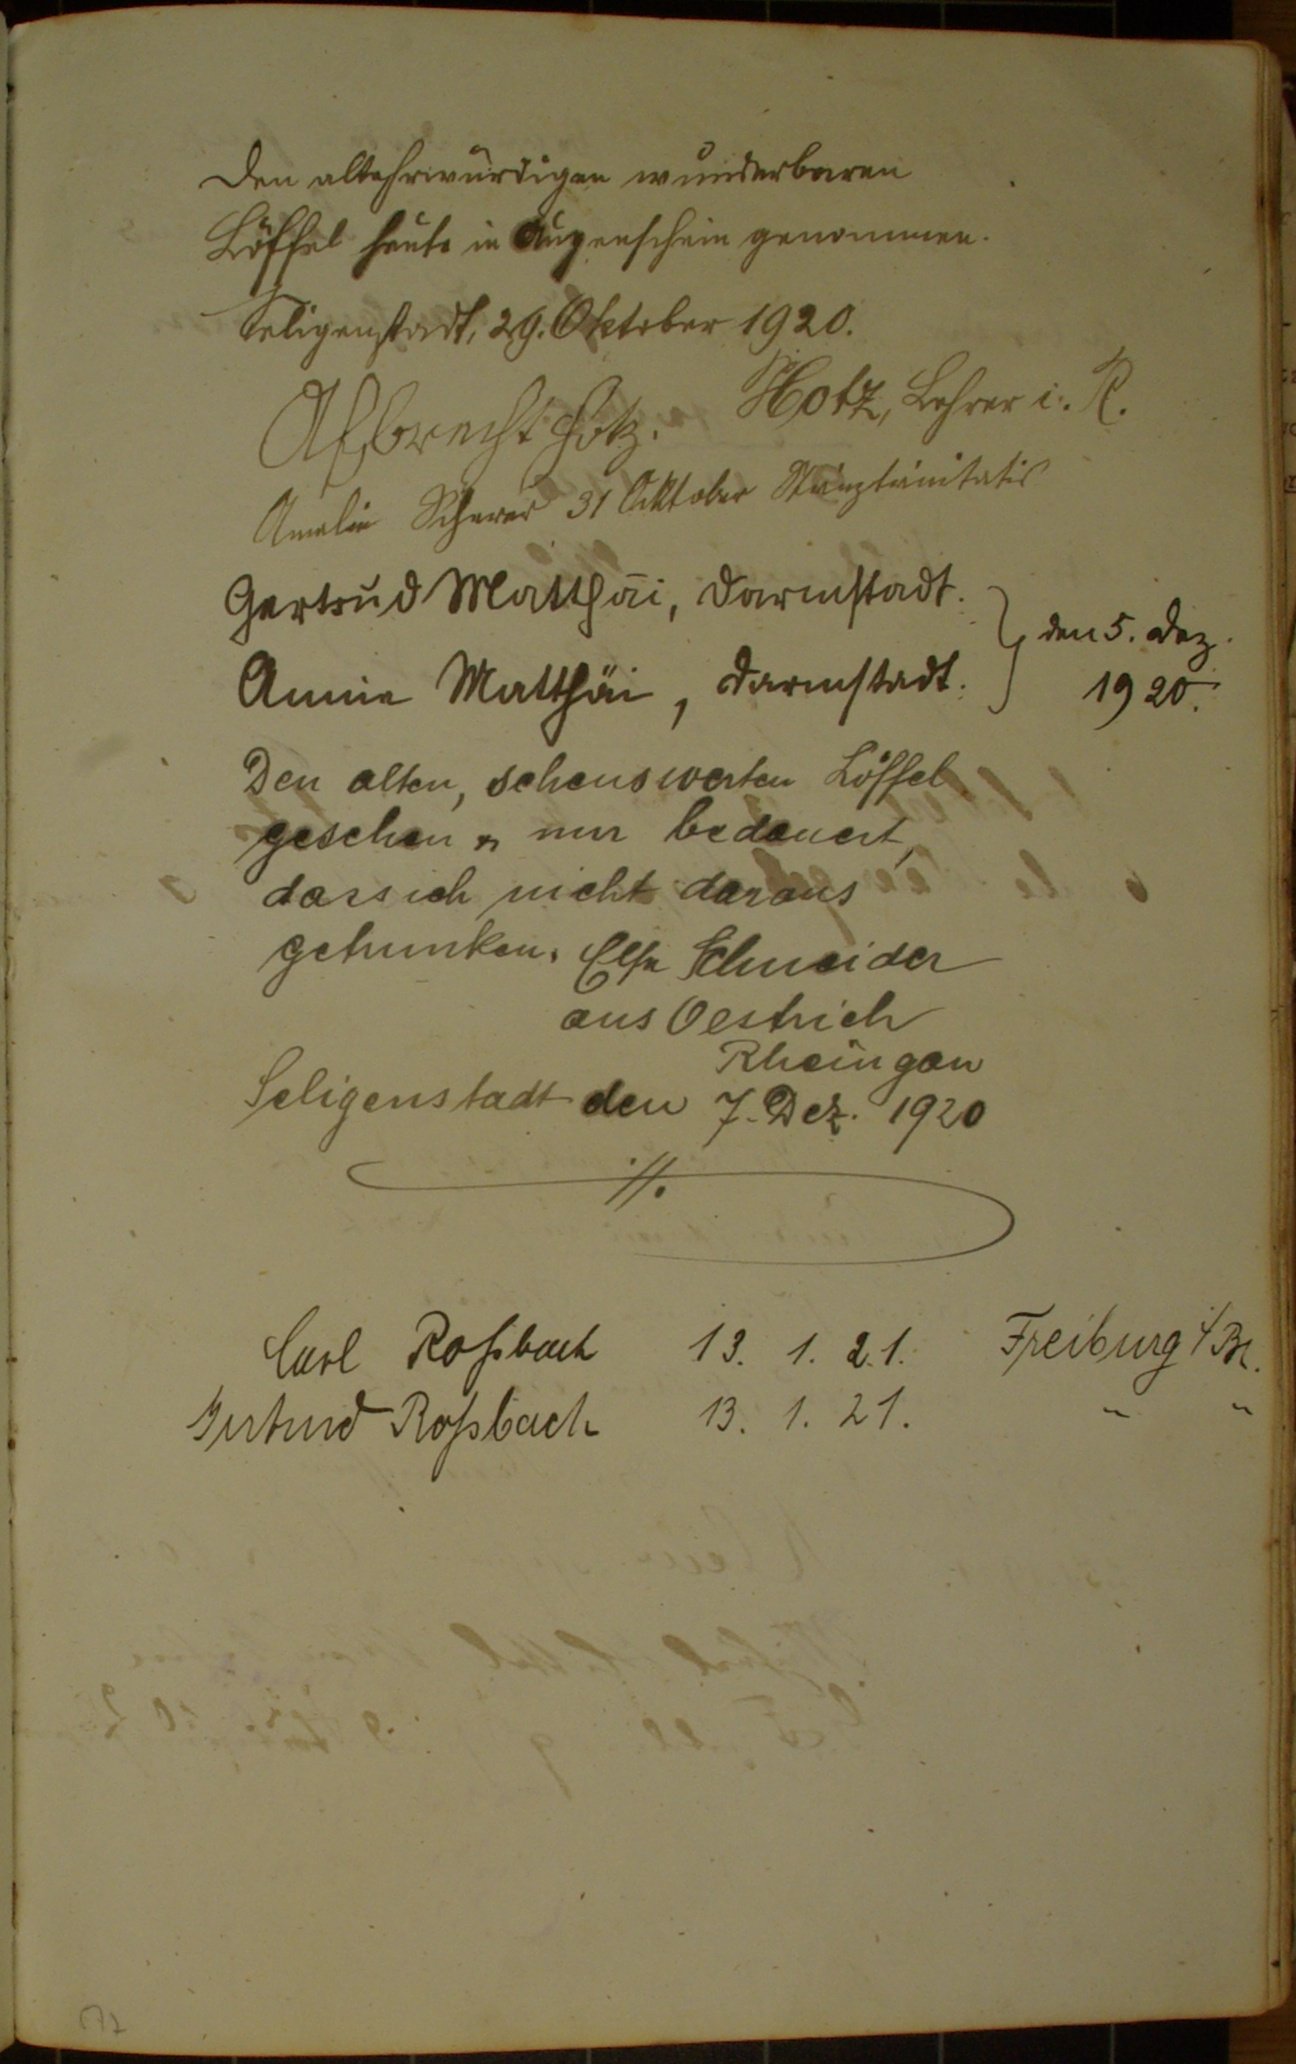 Den altehrwürdigen wunderbaren
Löffel heute in Augenschein genommen.
Seligenstadt, 29. Oktober 1920.
Hotz, Lehrer i. R.
Albrecht Hotz.
Amalie Scherer 31 Oktober
Gertrud Matthäi, Darmstadt.
Annie Matthäi, Darmstadt.
} den 5. Dez.
1920.
Den alten, sehenswerten Löffel
gesehen u nur bedauert,
dass ich nicht daraus
getrunken. Else Schneider
aus Oestrich
Rheingau
Seligenstadt den 7. Dez. 1920
Carl Roßbach 13. 1. 21. Freiburg i/Br.
Gertrud Roßbach 13. 1. 21. " "